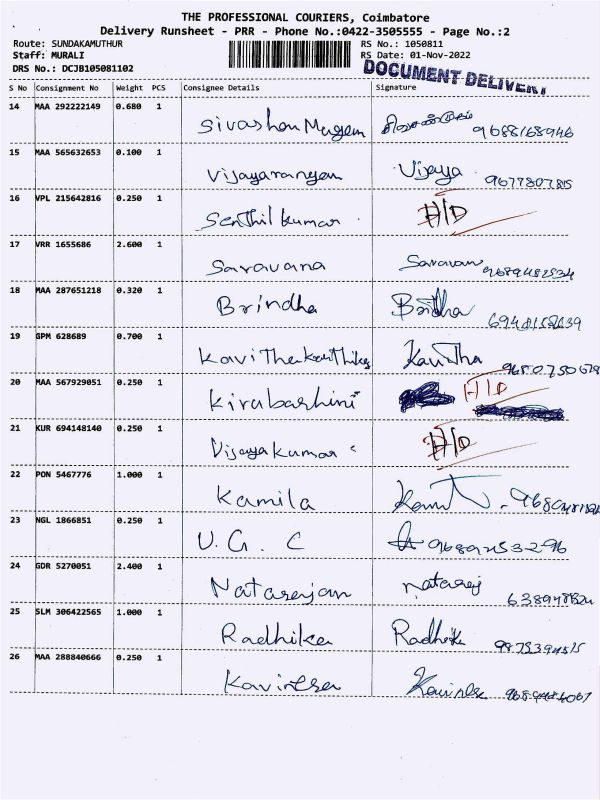 THE PROFESSIONAL COURIERS, Coimbatore
Delivery Runsheet - PRR - Phone No.:0422-3505555 - Page No.:2
Route: SUNDAKAMUTHUR RS No.: 1050811
Staff: MURALI RS Date: 01-Nov-2022
DRS No.: DCJB105081102 DOCUMENT DELIVERY
S No Consignment No Weight PCS Consignee Details Signature
14 MAA 292222149 0.680 1
9688168946
15 MAA 565632653 0.100 1
Vijayarangan Vijaya 9677807815
16 VPL 215642816 0.250 1
Senthil kumar H/D
17 VRR 1655686 2.600 1
Saravana Saravan
18 MAA 287651218 0.320 1
Brindha Brindha
19 GPM 628689 0.700 1
Kavitha karthika Kavitha
20 MAA 567929051 0.250 1
Kirubashini H/D
21 KUR 694148140 0.250 1
Vijaya kumar H/D
22 PON 5467776 1.000 1
Kamila
23 NGL 1866851 0.250 1
U. G. C
24 GDR 5270051 2.400 1
Natarajan Nataraj
25 SLM 306422565 1.000 1
Radhika Radhika
26 MAA 288840666 0.250 1